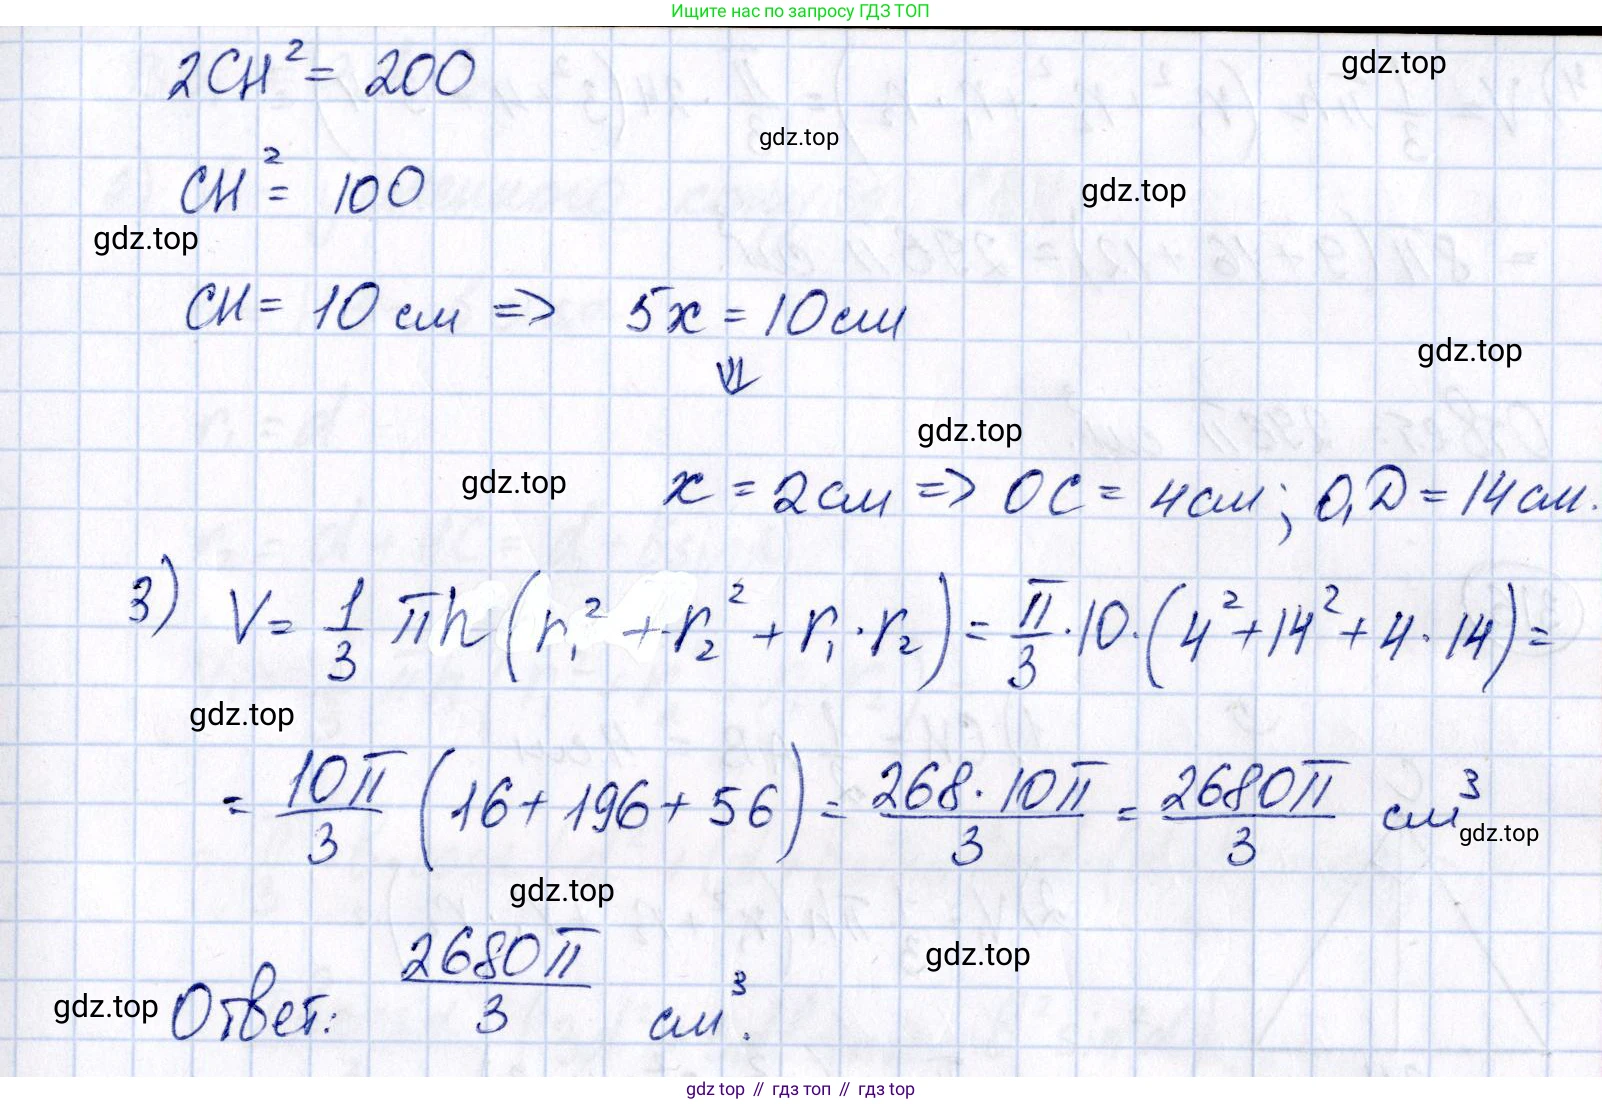 Ищите нас по запросу ГДЗ ТОП
2CH² = 200
gdz.top
gdz.top
CH² = 100
gdz.top
gdz.top
CH = 10 см => 5x = 10 см
gdz.top
⇓
gdz.top
gdz.top
x = 2 см => OC = 4 см; O₁D = 14 см.
3) V = 1/3 πh (r₁² + r₂² + r₁·r₂) = π/3 · 10 · (4² + 14² + 4 · 14) =
gdz.top
= 10π/3 (16 + 196 + 56) = 268 · 10π/3 = 2680π/3 см³
gdz.top
gdz.top
gdz.top
Ответ: 2680π/3 см³.
gdz.top
gdz top // гдз топ // gdz top